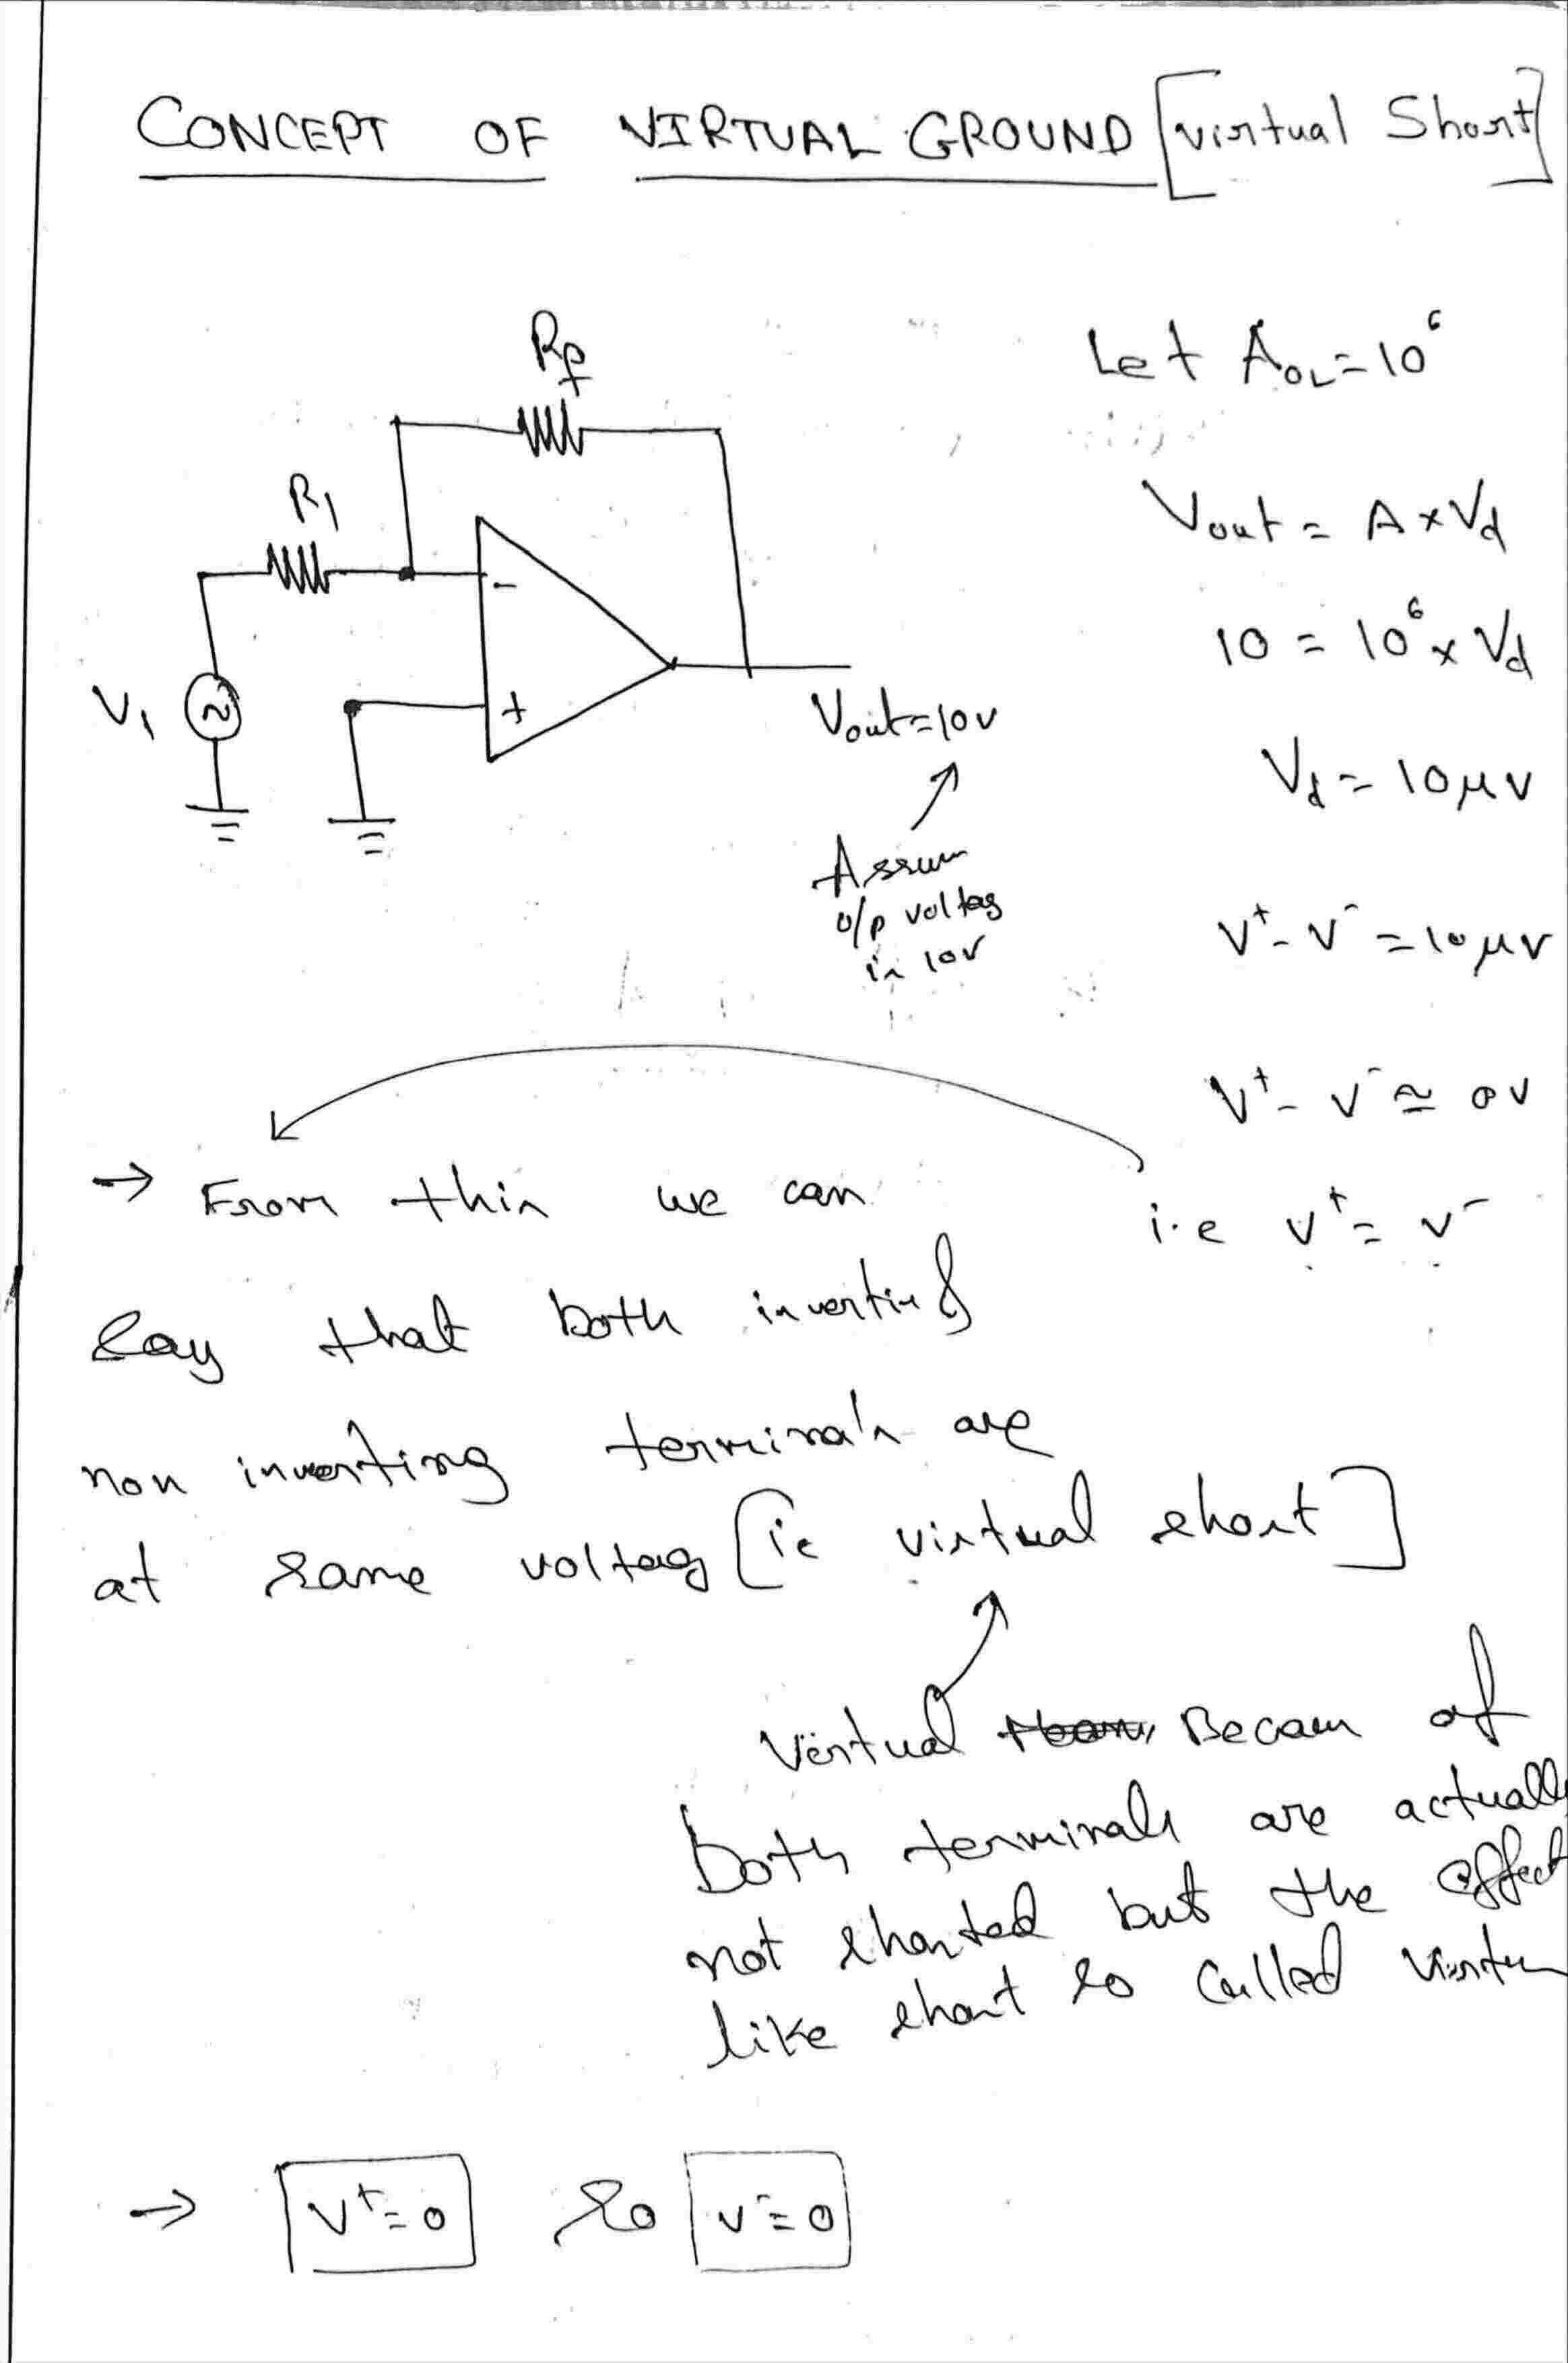 CONCEPT OF VIRTUAL GROUND [virtual Short]
Rf
R1
-
+
V1
Vout=10v
Assum
o/p voltag
in 10v
Let AOL=10⁶
Vout = A×Vd
10 = 10⁶ × Vd
Vd = 10μv
V⁺- V⁻ = 10μv
V⁺- V⁻ ≅ 0v
i.e V⁺= V⁻
→ From this we can
say that both invertin &
non inverting terminals are
at same voltag [ie virtual short]
Virtual Becaus of
both terminals are actually
not shorted but the effect
like short so called
→ V⁺=0 So V⁻=0